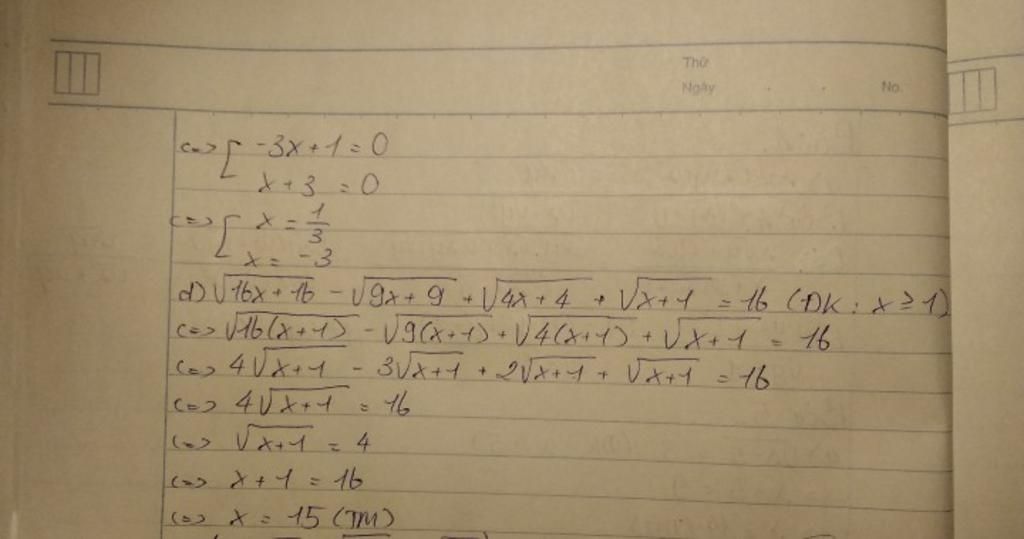 Thứ
Ngày
No.
<=> [ -3x+1=0
x+3 =0
<=> [ x = 1/3
x = -3
d) √(16x+16) - √(9x+9) + √(4x+4) + √(x+1) = 16 (ĐK: x ≥ 1)
<=> √(16(x+1)) - √(9(x+1)) + √(4(x+1)) + √(x+1) = 16
<=> 4√(x+1) - 3√(x+1) + 2√(x+1) + √(x+1) = 16
<=> 4√(x+1) = 16
<=> √(x+1) = 4
<=> x+1 = 16
<=> x = 15 (TM)